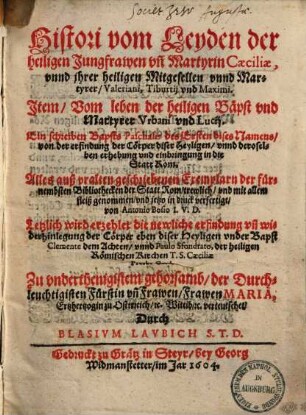 Societ. Jesu Augustæ.
Histori vom Leyden der
heiligen Jungfrawen vñ Martyrin Cæciliæ,
vnnd jhrer heiligen Mitgesellen vnnd Mar-
tyrer / Valeriani, Tiburtij vnd Maximi.
Item / Vom leben der heiligen Bäpst vnd
Martyrer Vrbani vnd Lucij.
Ein schreiben Bapsts Paschalis des Ersten dises Namens /
von der erfindung der Cörper diser Heyligen / vnnd derosel-
ben erhebung vnd einbringung in die
Statt Rom.
Alles auß vralten geschribenen Exemplarn der für-
nembsten Bibliothecken der Statt Rom / trewlich / vnd mit allem
fleiß genommen / vnd jetzo in druck verfertigt /
von Antonio Bosio I. V. D.
Letzlich wird erzehlet die newliche erfindung vñ wi-
derhinlegung der Cörper eben diser Heyligen vnder Bapst
Clemente dem Achten / vnnd Paulo Sfondrato, der heiligen
Römischen Kirchen T. S. Cæciliæ
Zu vnderthenigistem gehorsamb / der Durch-
leuchtigisten Fürstin vñ Frawen / Frawen MARIA,
Ertzhertzogin zu Osterreich / ꝛc. Wittibin, verteutschet /
Durch
BLASIVM LAVBICH S. T. D.
Gedruckt zu Grätz in Steyr / bey Georg
Widmanstetter / im Jar 1604.
IN
AUGSBURG